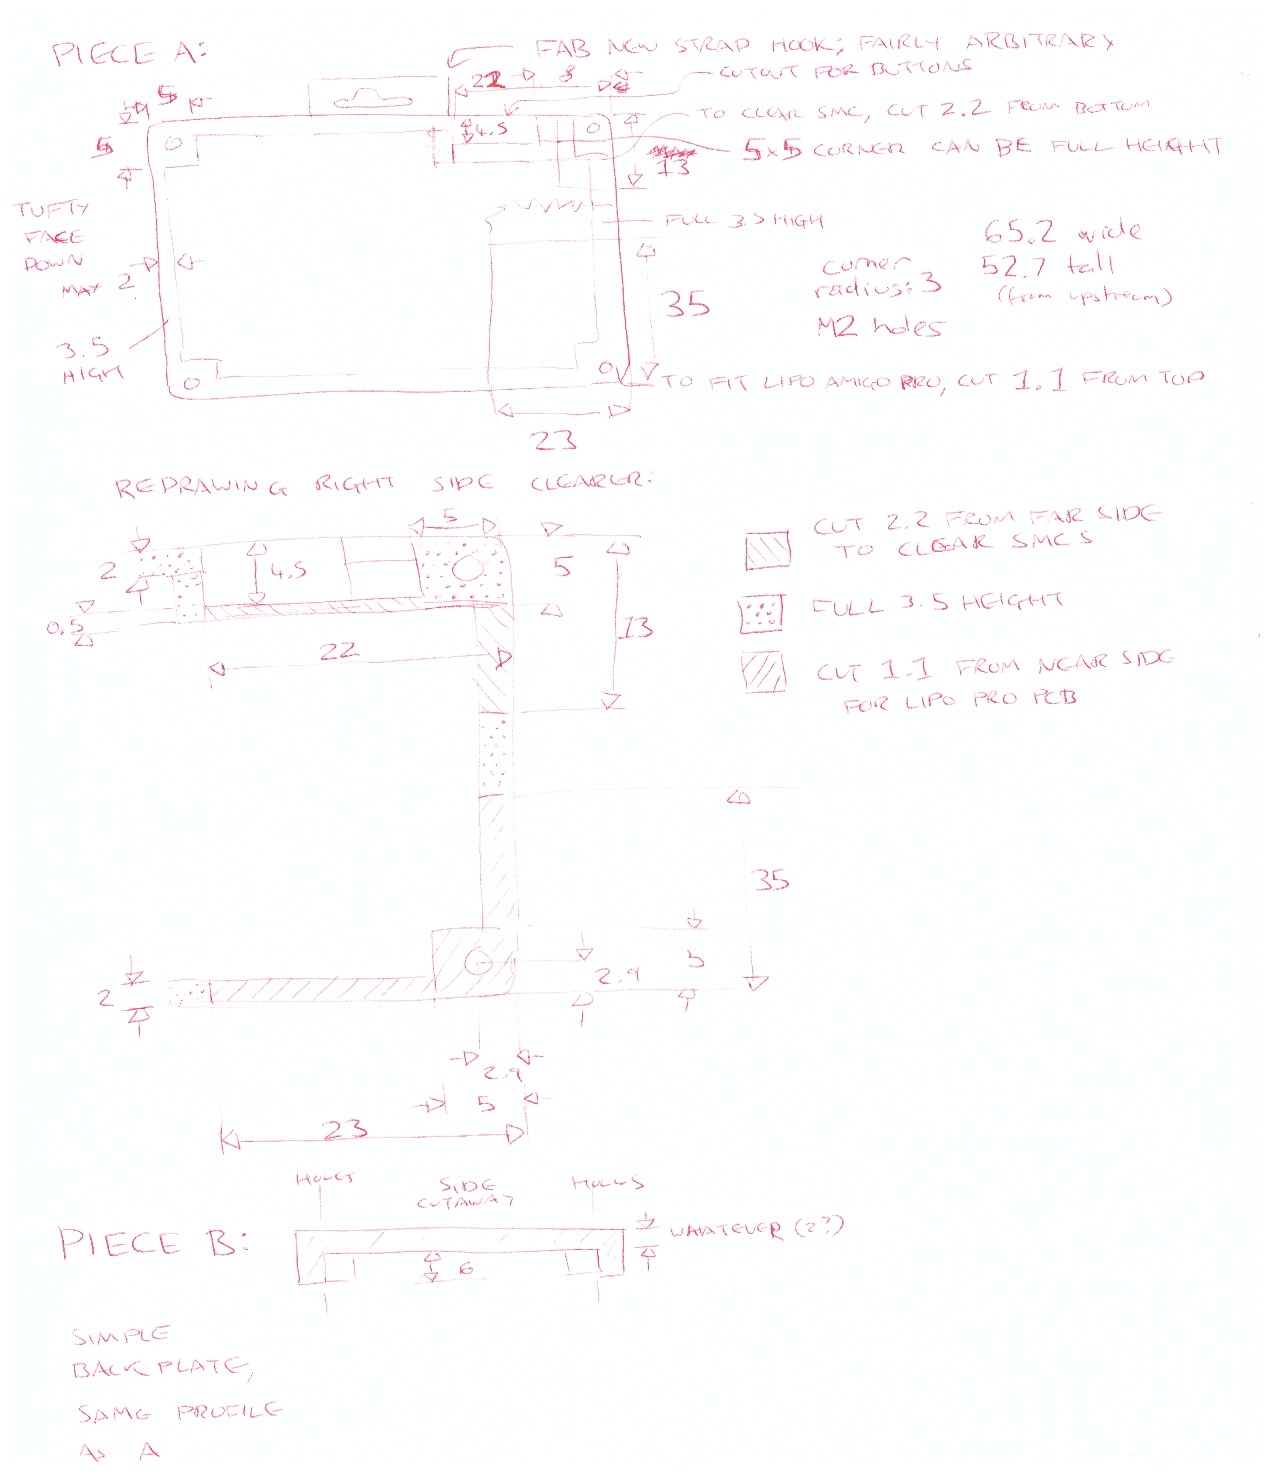 PIECE A:
FAB NEW STRAP HOOK; FAIRLY ARBITRARY
CUTOUT FOR BUTTONS
22
8
5
TO CLEAR SMC, CUT 2.2 FROM BOTTOM
4.5
5
5x5 CORNER CAN BE FULL HEIGHT
13
TUFTY
FACE
DOWN
MAX 2
FULL 3.5 HIGH
65.2 wide
52.7 tall
(from upstream)
corner
radius: 3
M2 holes
35
3.5
HIGH
TO FIT LIPO AMIGO PRO, CUT 1.1 FROM TOP
23
REDRAWING RIGHT SIDE CLEARER:
5
CUT 2.2 FROM FAR SIDE
TO CLEAR SMCS
2
4.5
5
FULL 3.5 HEIGHT
0.5
13
22
CUT 1.1 FROM NEAR SIDE
FOR LIPO PRO PCB
35
2.9
5
2
2.9
5
23
HOLES
SIDE
CUTAWAY
HOLES
PIECE B:
WHATEVER (2?)
6
SIMPLE
BACKPLATE,
SAME PROFILE
AS A